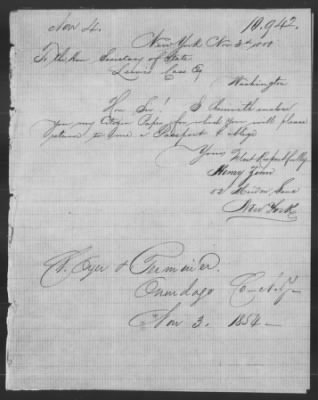 Nov 4. 10.942.
New York Nov 3d
To the Hon Secretary of State
Lewis Cass Esq
Washington
Hon Sir! I herewith
you my Citizen Paper for which you will please
return to me a Passport & oblige
Yours Most Respectfully
Henry
52 Maiden Lane
New York
Onondago Co N.Y.
Nov 3. 1854